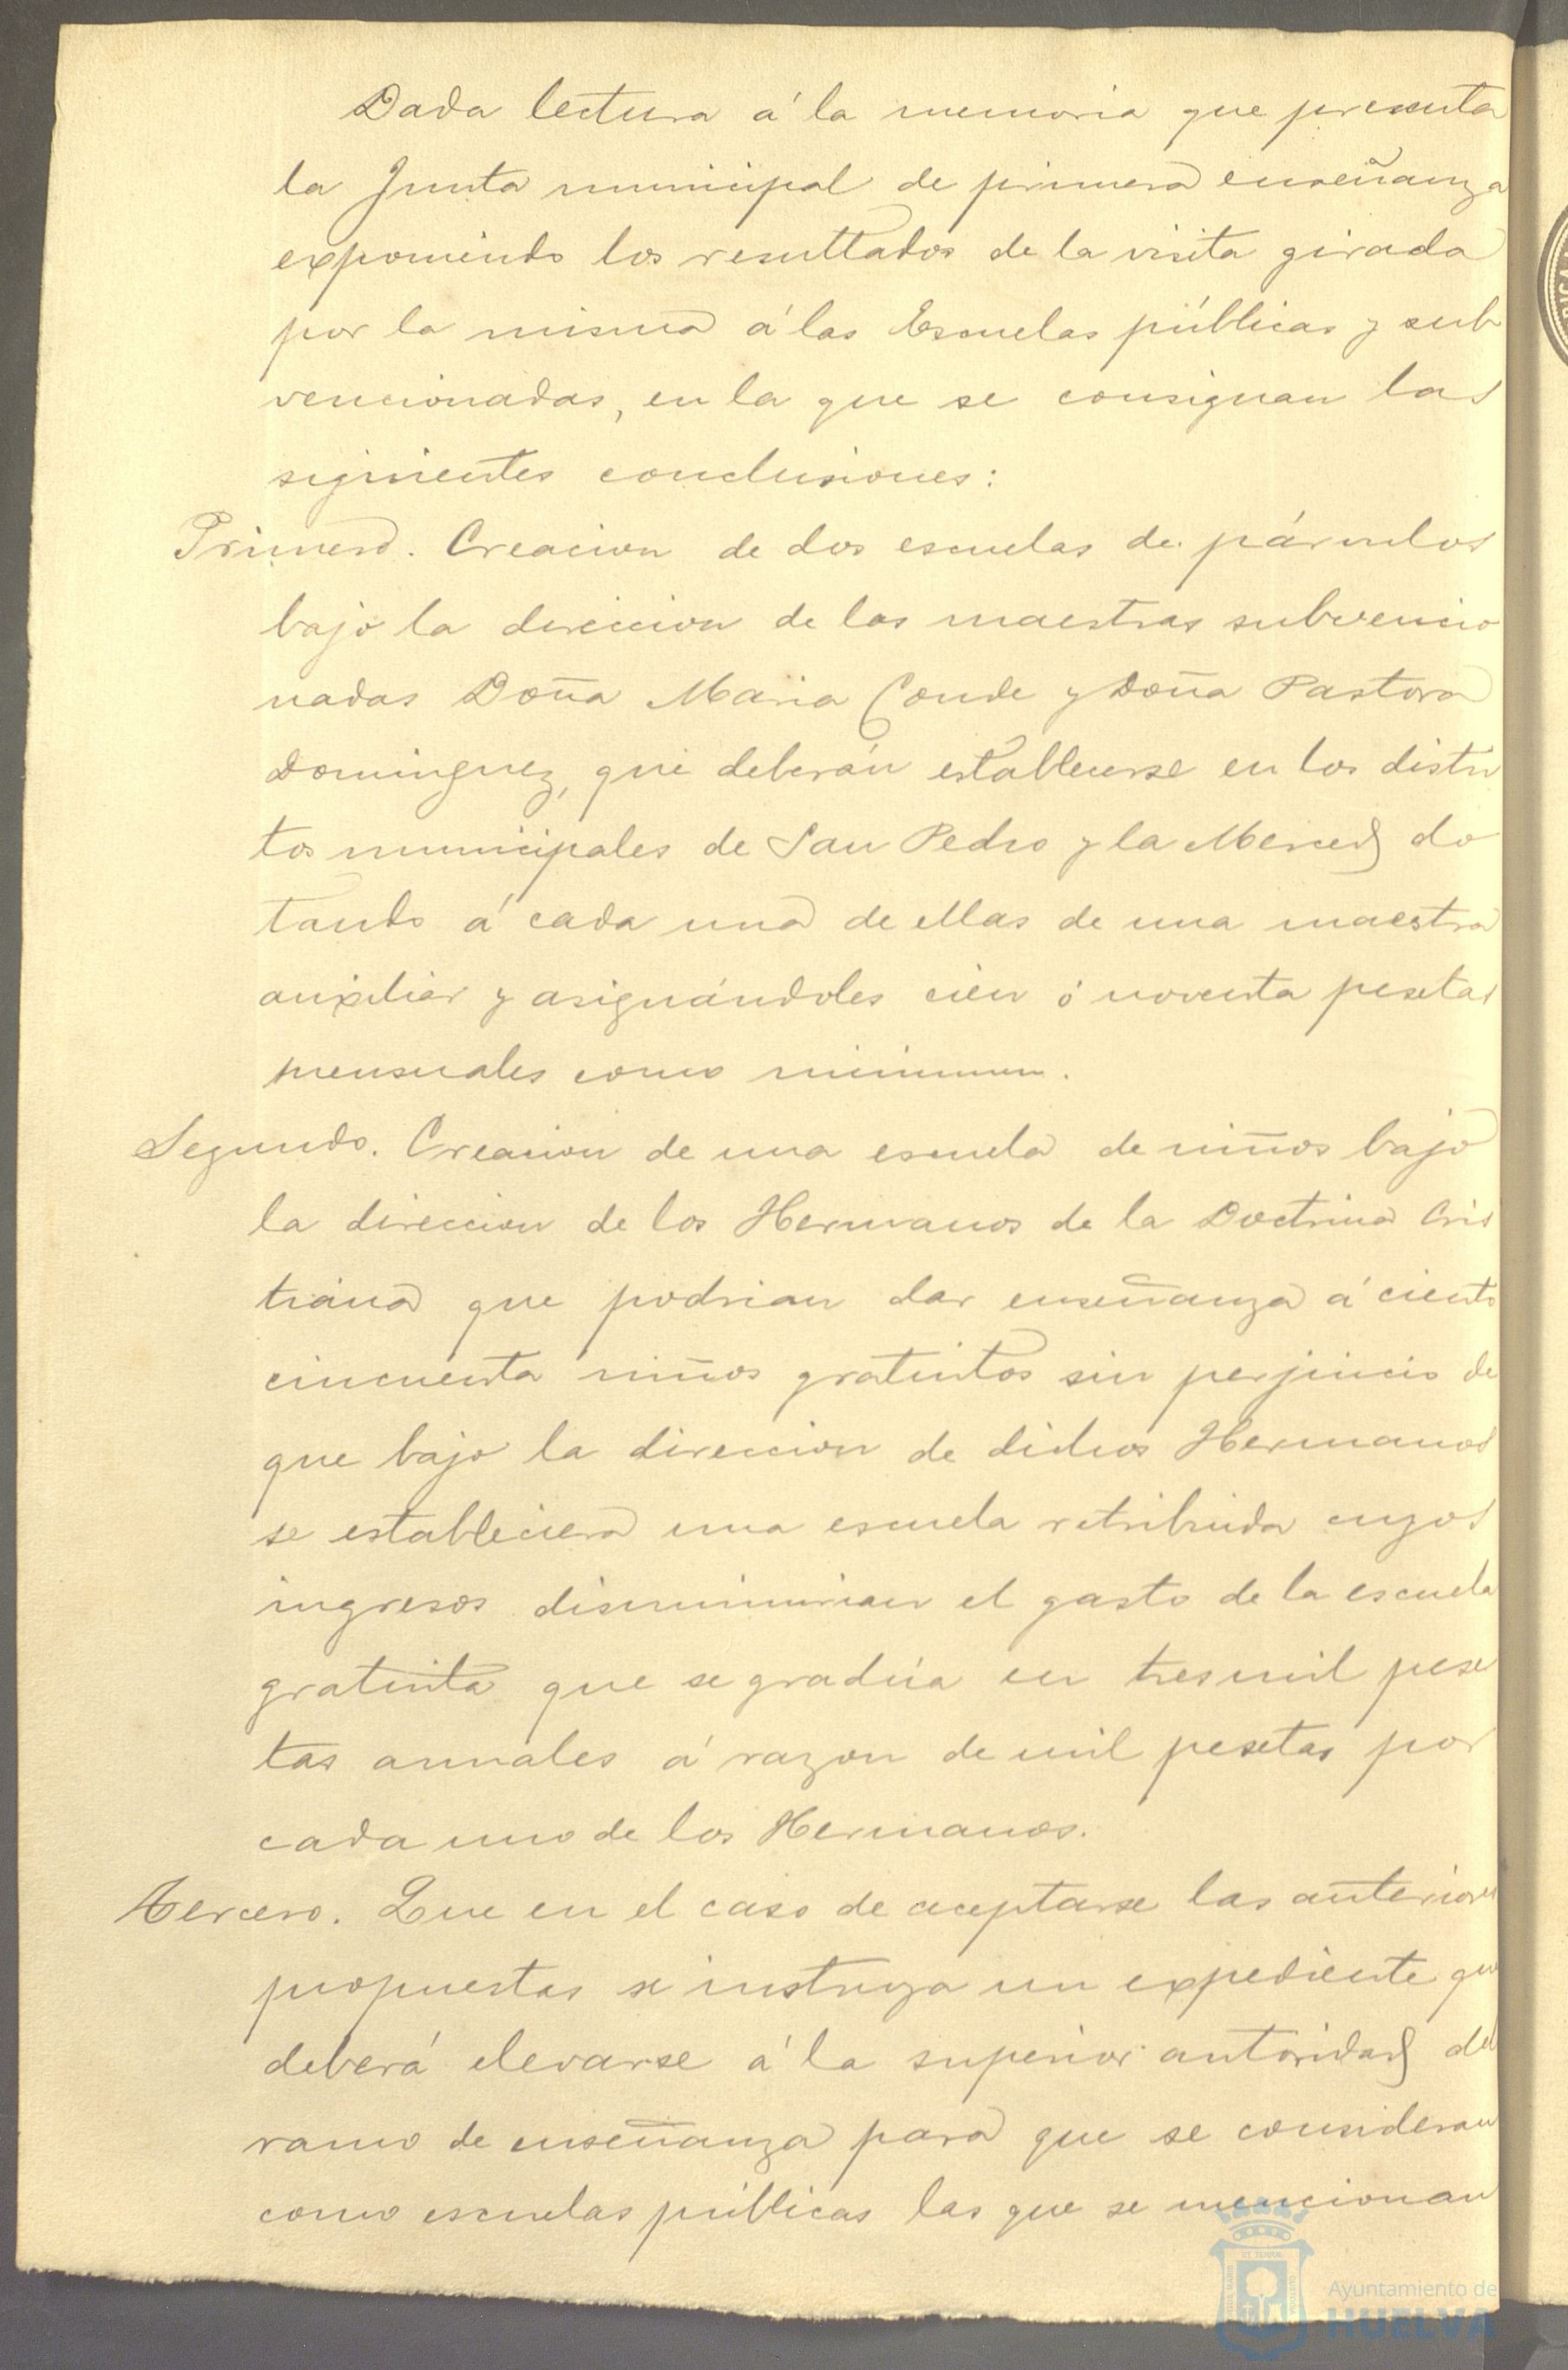 Dada lectura á la memoria que presenta
la Junta municipal de primera enseñanza
exponiendo los resultados de la visita girada
por la misma á las Escuelas públicas y sub
vencionadas, en la que se consignan las
siguientes conclusiones:
Primero. Creacion de dos escuelas de párvulos
bajo la direccion de las maestras subvencio
nadas Doña Maria Conde y Doña Pastora
Dominguez, que deberán establecerse en los distri
tos municipales de San Pedro y la Merced do
tando á cada una de ellas de una maestra
auxiliar y asignándoles cien ó noventa pesetas
mensuales como minimum.
Segundo. Creacion de una escuela de niños bajo
la direccion de los Hermanos de la Doctrina Cris
tiana que podrian dar enseñanza á ciento
cincuenta niños gratuitos sin perjuicio de
que bajo la direccion de dichos Hermanos
se estableciera una escuela retribuida cuyos
ingresos disminuirian el gasto de la escuela
gratuita que se gradúa en tres mil pese
tas anuales á razon de mil pesetas por
cada uno de los Hermanos.
Tercero. Que en el caso de aceptarse las anteriores
propuestas se instruya un expediente que
deberá elevarse á la superior autoridad del
ramo de enseñanza para que se consideran
como escuelas públicas las que se mencionan
Ayuntamiento de
HUELVA